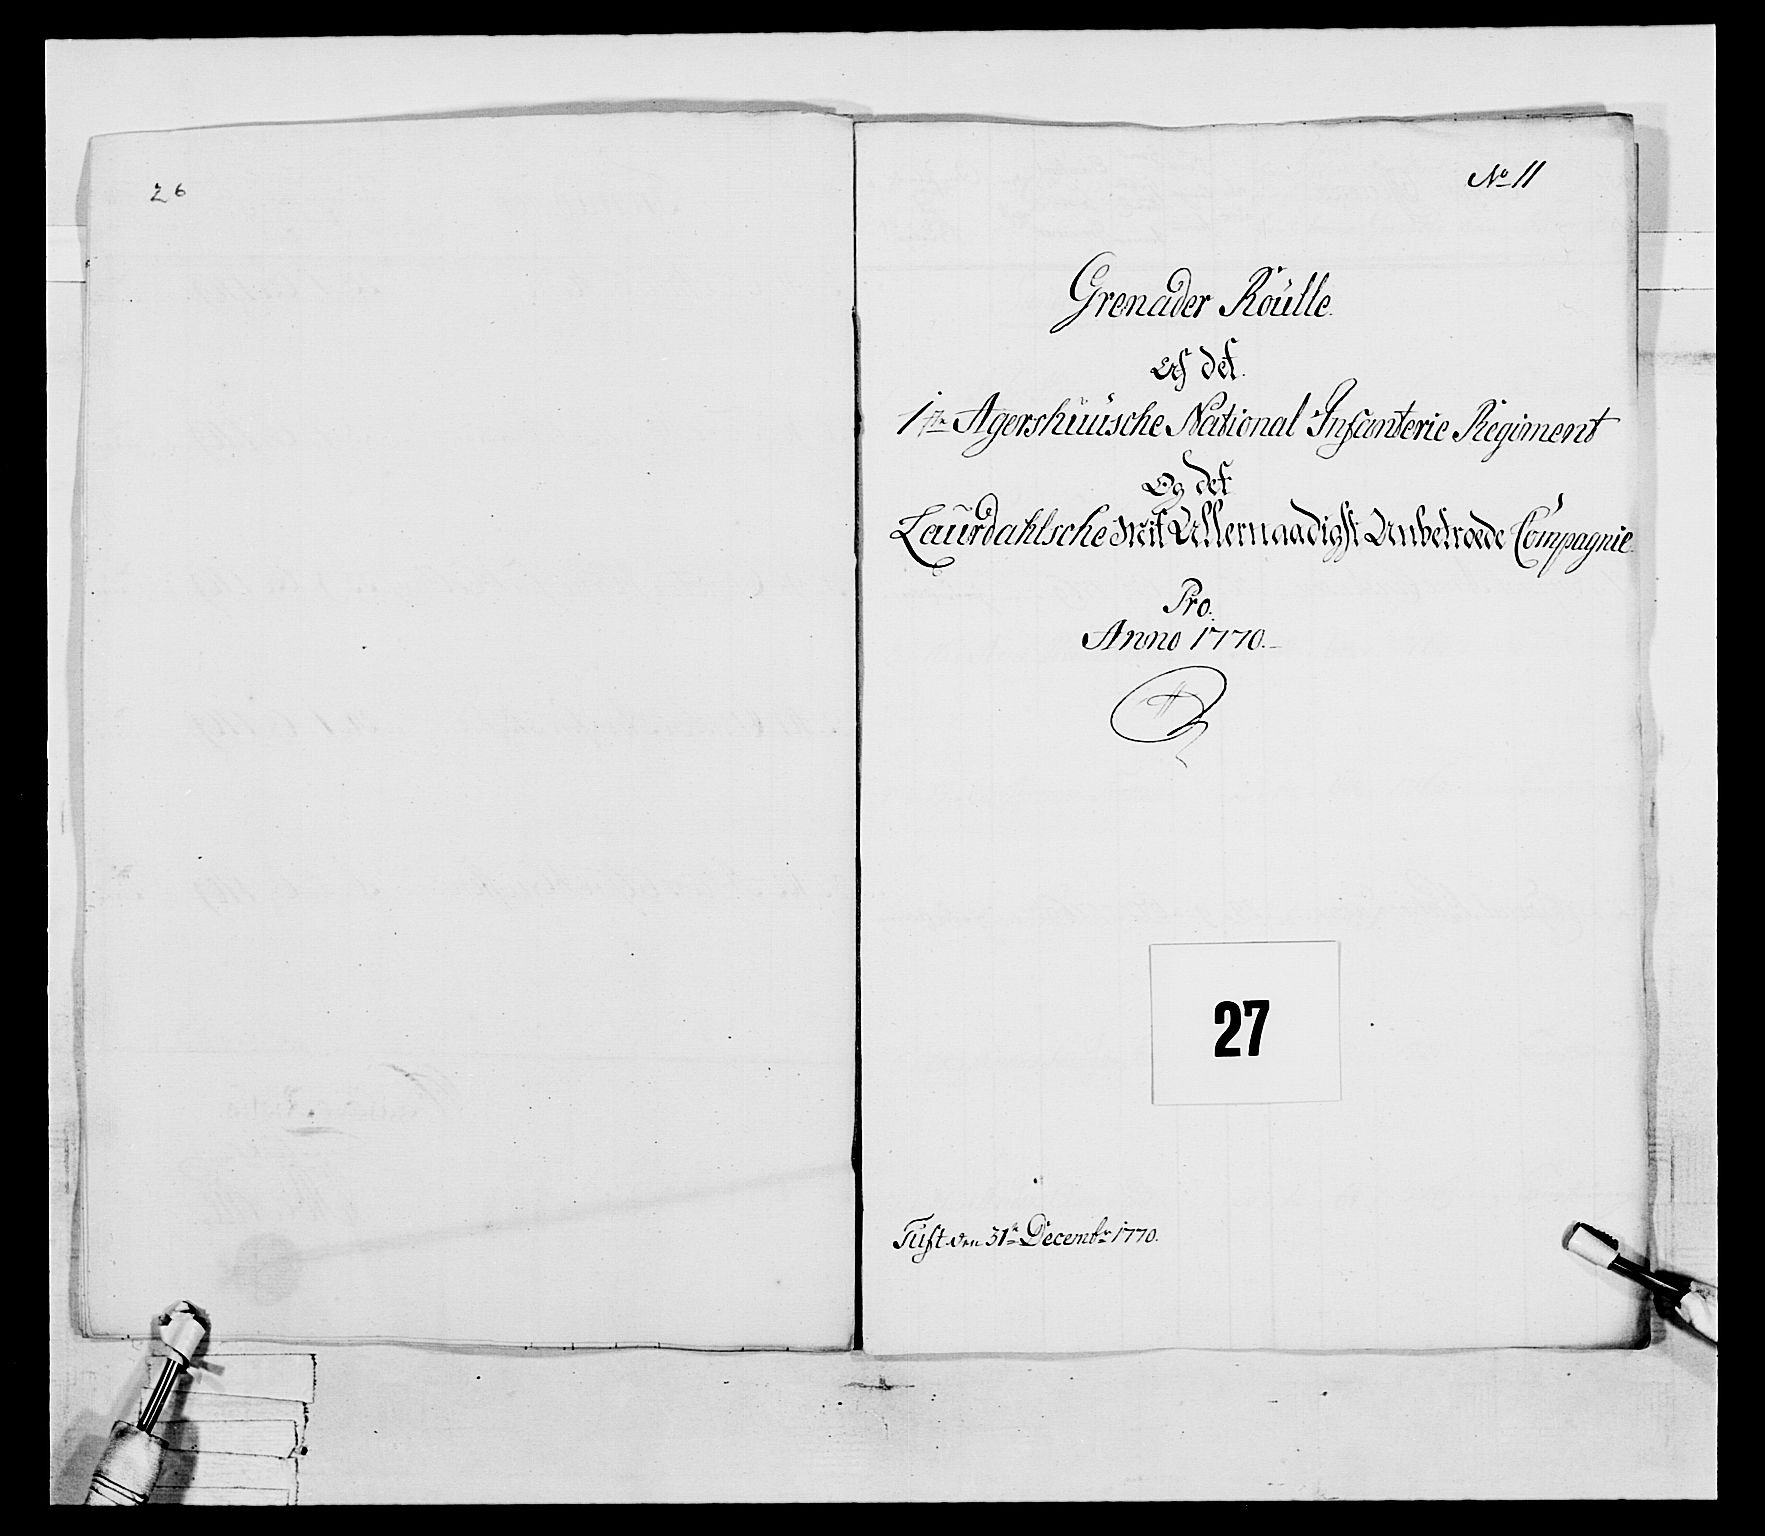 26
No 11
Grenader Roülle.
Af det.
1ste Agershuusche National Infanterie Regiment
Og det
Laurdahlsche Mit Allernaadigst Anbetroede Compagnie.
Pro.
Anno 1770.
27
Tuft den 31te Decembr 1770.